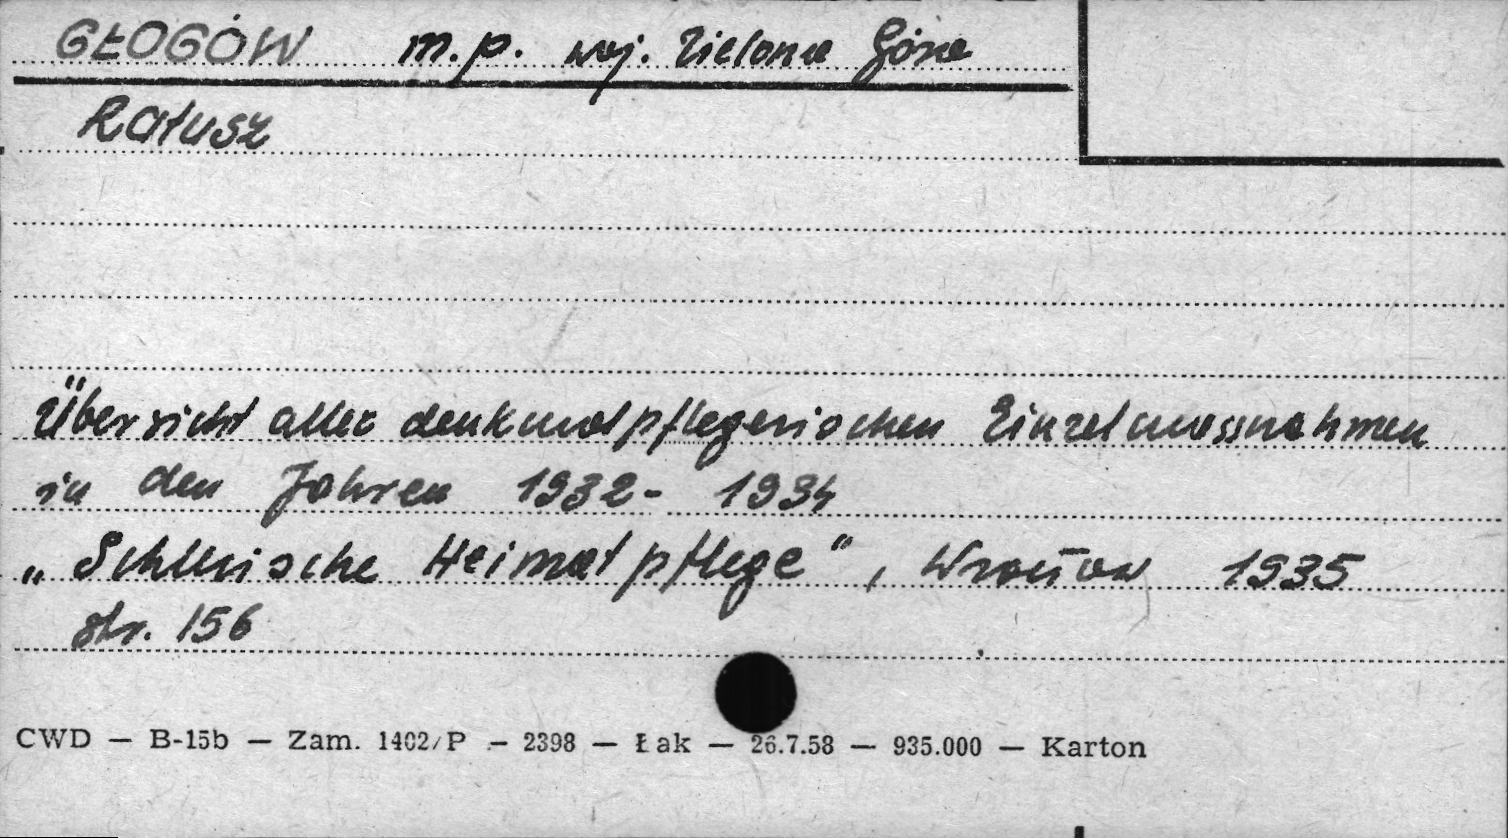 GŁOGÓW m.p. woj. Zielona Góra
Ratusz
Übersicht aller denkmalpflegerischen Einzelmassnahmen
in den Jahren 1932- 1934
„Schlesische Heimatpflege", Wrocław 1935
str. 156
CWD — B-15b — Zam. 1402/P — 2398 — Łak — 26.7.58 — 935.000 — Karton